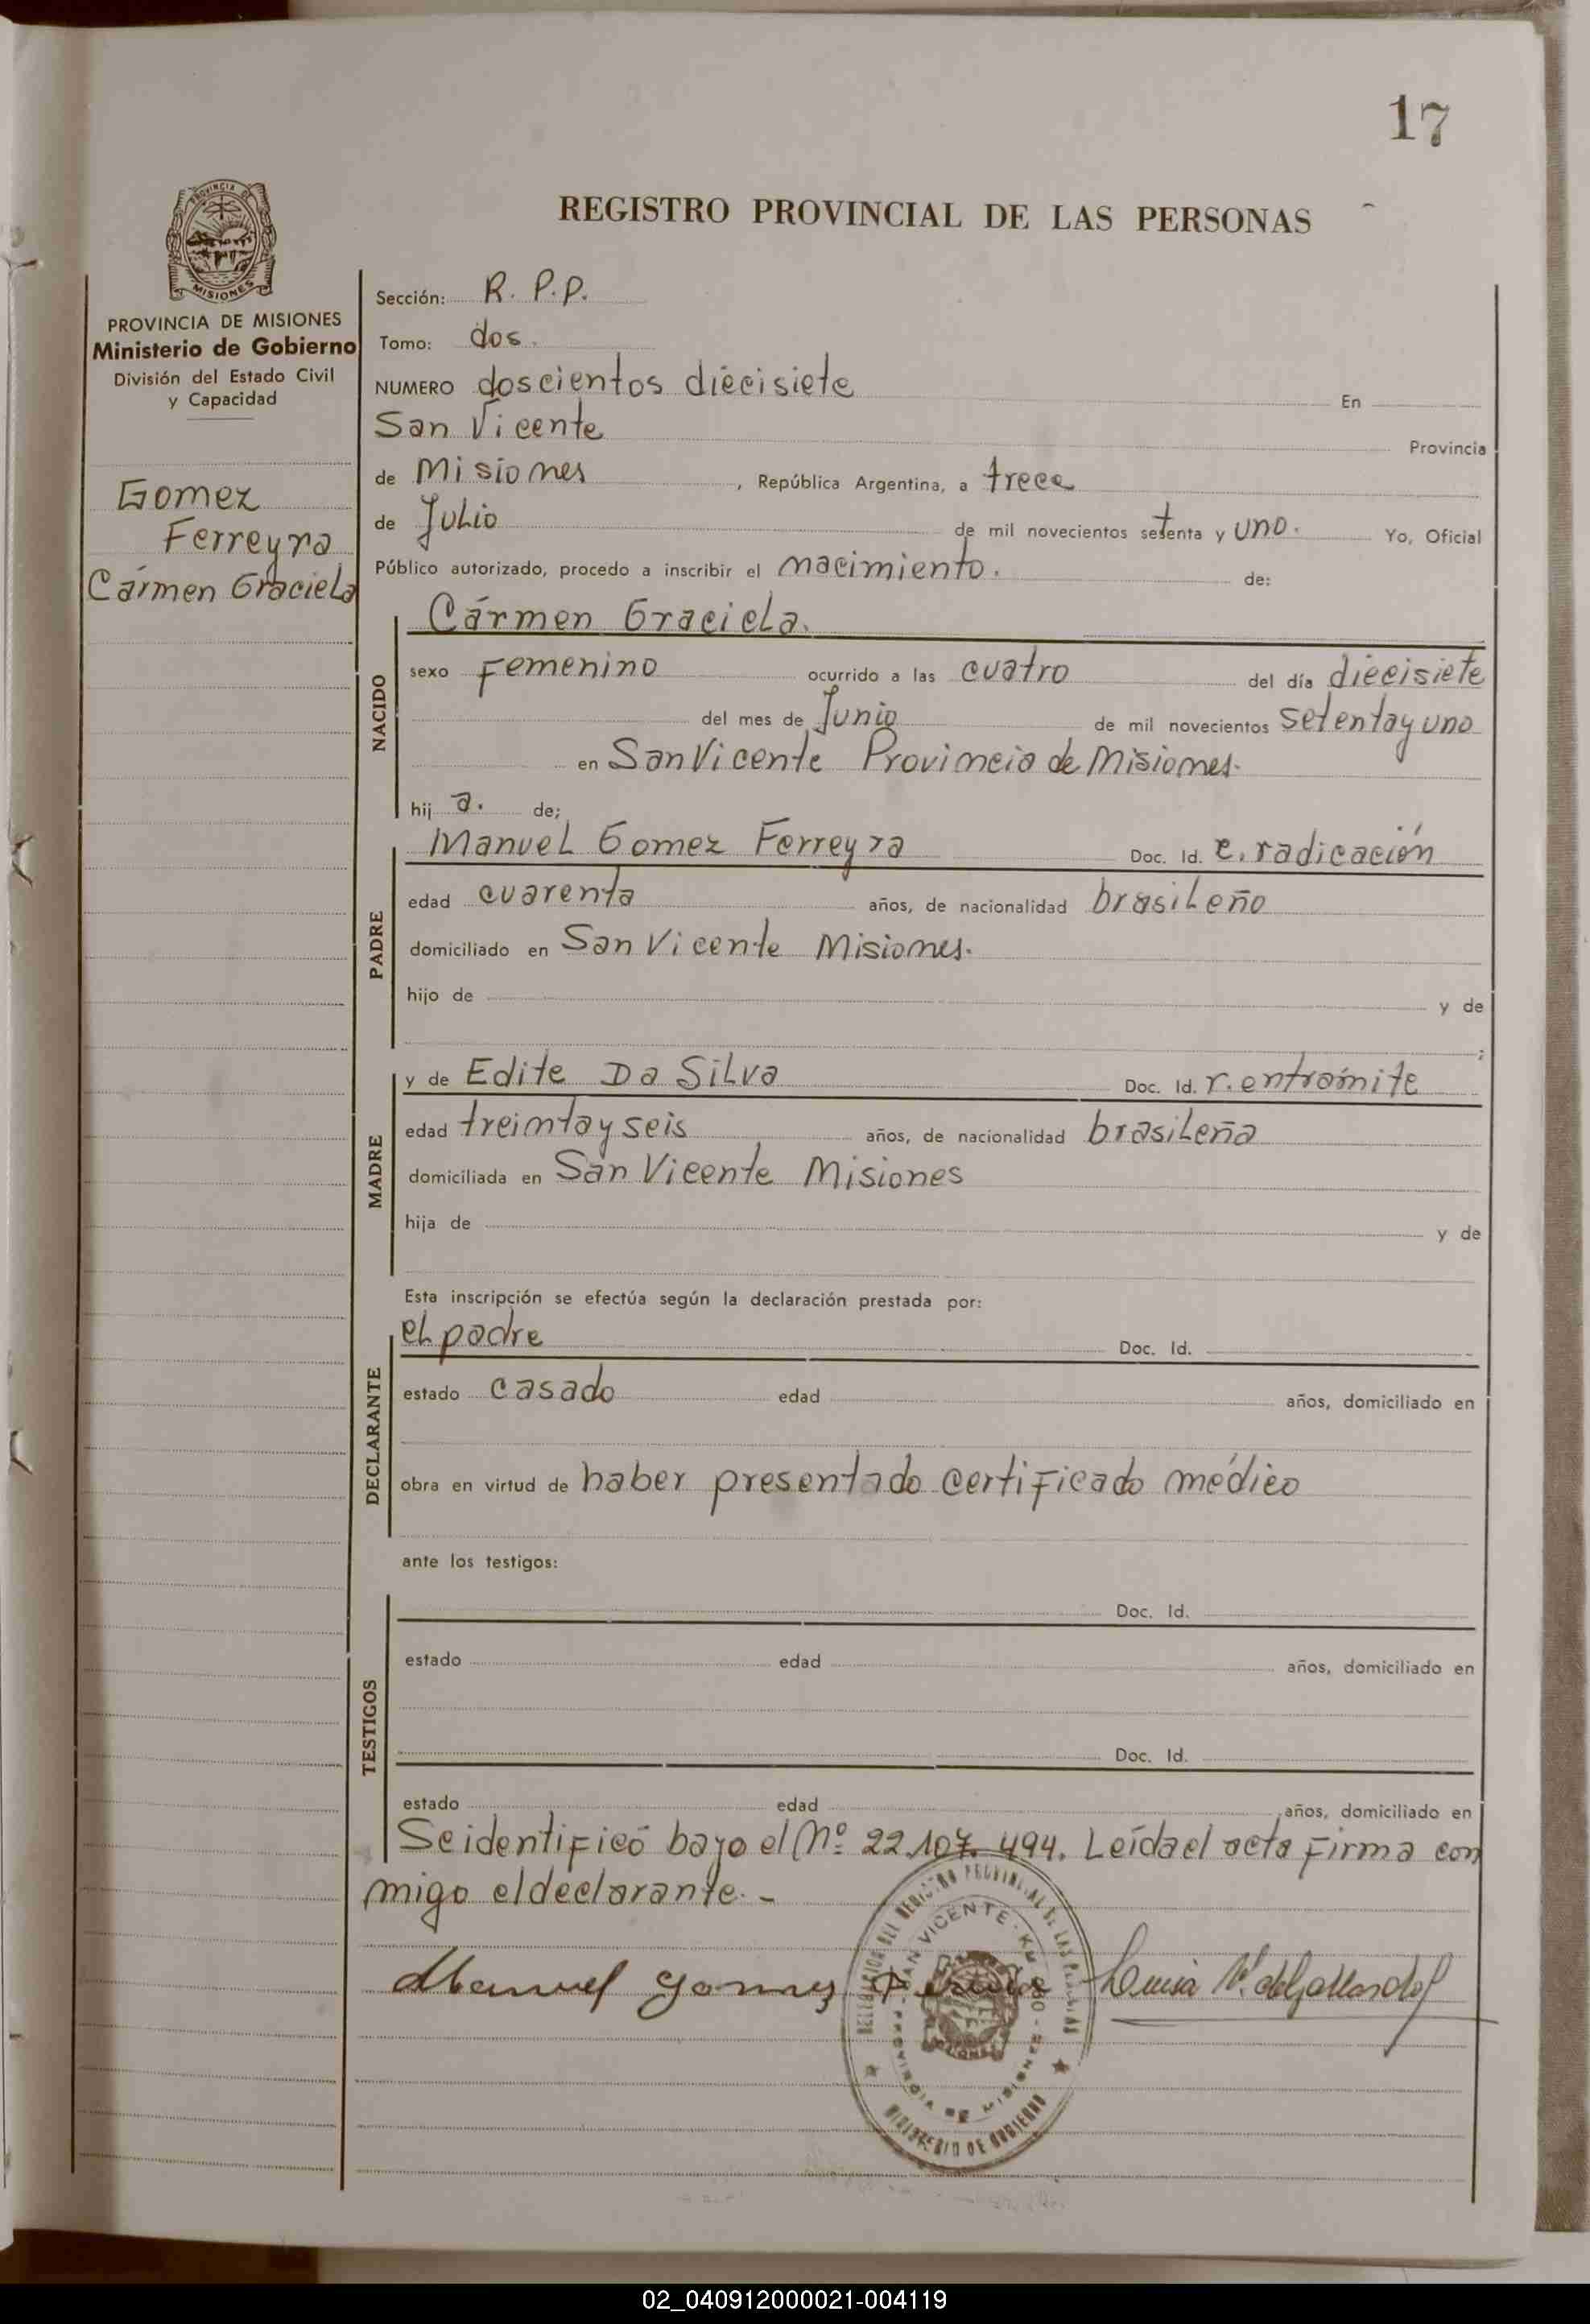 17
REGISTRO PROVINCIAL DE LAS PERSONAS
PROVINCIA DE MISIONES
Ministerio de Gobierno
División del Estado Civil
y Capacidad
Gomez
Ferreyra
Cármen Graciela
Sección: R. P.P.
Tomo: dos.
NUMERO doscientos diecisiete En
San Vicente Provincia
de Misiones, República Argentina, a trece
de Julio de mil novecientos setenta y uno. Yo, Oficial
Público autorizado, procedo a inscribir el nacimiento. de:
NACIDO
Cármen Graciela.
sexo Femenino ocurrido a las cuatro del día diecisiete
del mes de Junio de mil novecientos setenta y uno
en San Vicente Provincia de Misiones.
hij a. de;
PADRE
Manuel Gomez Ferreyra Doc. Id. c. radicación
edad cuarenta años, de nacionalidad brasileño
domiciliado en San Vicente Misiones.
hijo de y de
;
MADRE
y de Edite Da Silva Doc. Id. r. entrámite
edad treinta y seis años, de nacionalidad brasileña
domiciliada en San Vicente Misiones
hija de y de
Esta inscripción se efectúa según la declaración prestada por:
DECLARANTE
el padre Doc. Id.
estado casado edad años, domiciliado en
obra en virtud de haber presentado certificado médico
ante los testigos:
TESTIGOS
Doc. Id.
estado edad años, domiciliado en
Doc. Id.
estado edad años, domiciliado en
Se identificó bajo el Nº 22.107.494. Leída el acta firma con
migo el declarante. -
Manuel Gomez
DELEGACION DEL REGISTRO PROVINCIAL DE LAS PERSONAS
SAN VICENTE
PROVINCIA DE MISIONES
MINISTERIO DE GOBIERNO
02_040912000021-004119